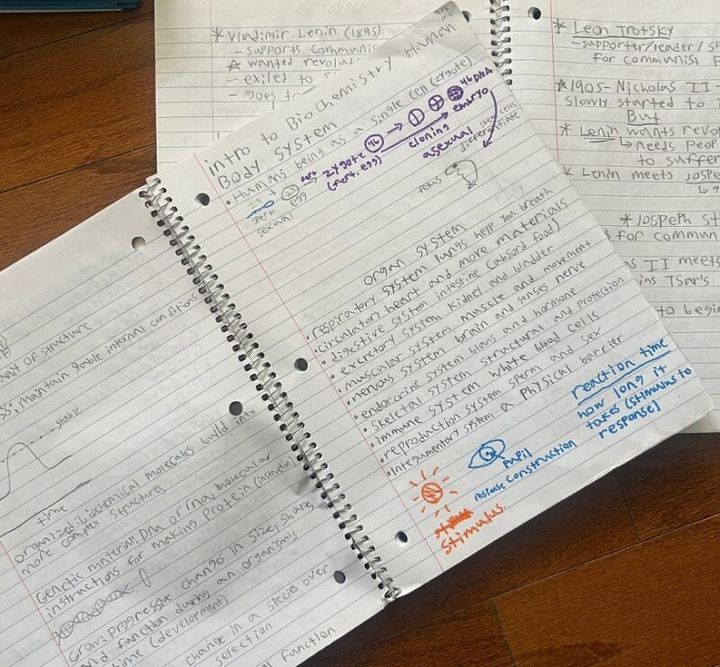 * Vladimir Lenin (1895)
- supports communis
* wanted revolu
- exiled to
- goes to
* Leon Trotsky
- supporter/leader/s
for communist P
* 1905- Nicholas II
slowly started to
But
* Lenin wants revo
↳ needs peop
to suffer
* Lenin meets Jose
* Jospeth St
for commun
as II meets
ins Tsar's
to begin
intro to Biochemistry Human
Body System
• Humans being as a single cell (zygote)
23 + 23 → zygote 46 → embryo 46 DNA
sperm egg (fert. egg) cloning
sexual asexual cells
differentiate
fetus
organ system
• respiratory system lungs help you breath
• circulatory heart and more materials
• digestive system intestine (absorb food)
• excretory system kidney and bladder
• muscular system muscle and movement
• nervous system brain and senses nerve
• endocrine system and hormone
• skeletal system structural and protection
• immune system white blood cells
• reproduction system sperm and sex
• integumentory system a physical barrier
reaction time
how long it
takes (stimulus to
response)
pupil
response construction
stimulus
unit of structure
maintain stable internal conditions
stable
time
organized: biochemical molecules build into
more complex structures
Genetic material: Dna or rna molecular
instructions for making Protein (instruction)
Grow: Progressive change in size, shape,
and function during an organisms
time (development)
change in a species over
selection
function